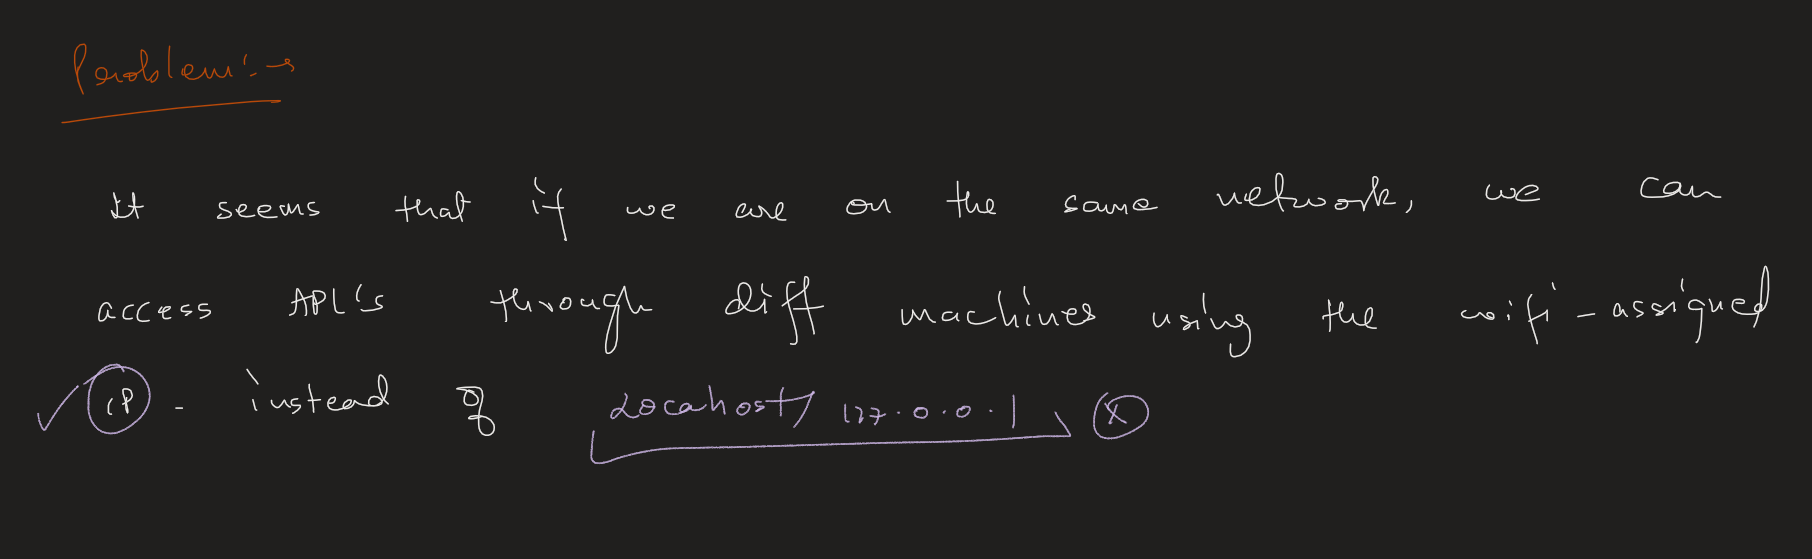 Problem :→
It seems that if we are on the same network, we can
access API's through diff machines using the wifi-assigned
✓ IP - instead of Locahost/ 127.0.0.1 ⓧ